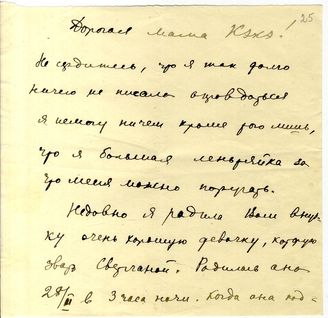 25
Дорогая мама Кэкэ!
Не сердитесь, что я так долго
ничего не писала оправдаться
я немогу ничем кроме того лишь,
что я большая лентяйка за
что меня можно поругать.
Недавно я родила Вам внуч-
ку очень хорошую девочку, которую
звать Светланой. Родилась она
28/II в 3 часа ночи. Когда она под-